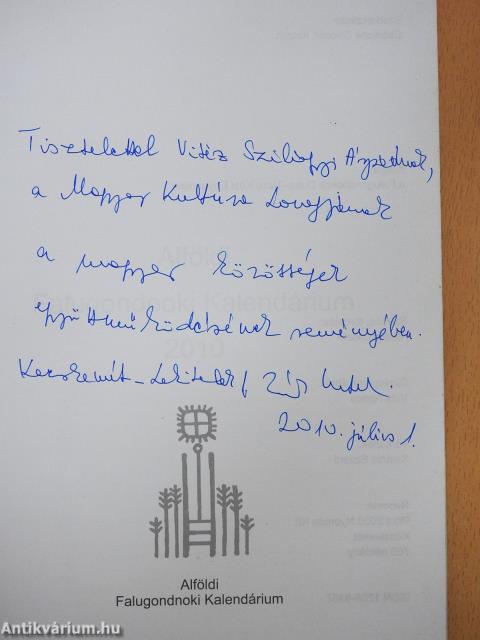 Tisztelettel Vitéz Szilágyi Árpádnak,
a Magyar Kultúra Lovagjának
a magyar közösségek
együttműködésének reményében.
Kecskemét - 
2010. július 1.
Alföldi
Falugondnoki Kalendárium
2010
Alföldi
Falugondnoki Kalendárium
Antikvárium.hu